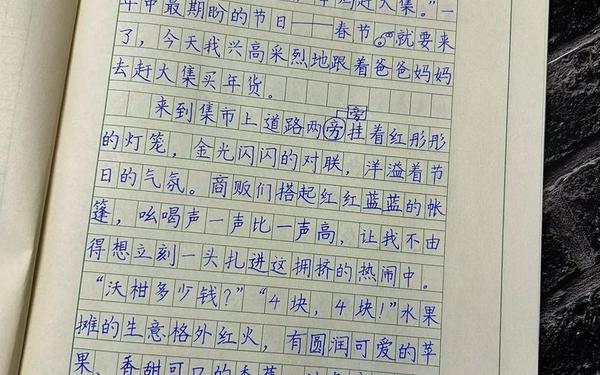 赶大集。”一
年中最期盼的节日——春节就要来
了，今天我兴高采烈地跟着爸爸妈妈
去赶大集买年货。
来到集市上道路两旁挂着红彤彤
的灯笼，金光闪闪的对联，洋溢着节
日的气氛。商贩们搭起红红蓝蓝的帐
篷，吆喝声一声比一声高，让我不由
得想立刻一头扎进这拥挤的热闹中。
“沃柑多少钱？”“4块，4块！”水果
摊的生意格外红火，有圆润可爱的苹
果、香甜可口的香蕉